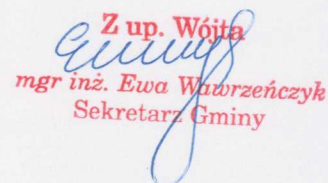 Z up. Wójta
mgr inż. Ewa Wawrzeńczyk
Sekretarz Gminy